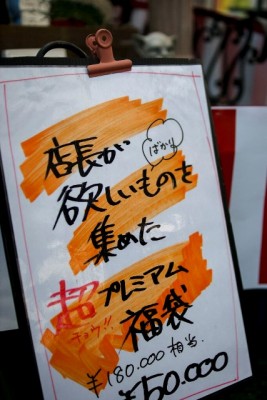 店長が
ばかり
欲しいものを
集めた
超プレミアム
チョウ!!
福袋
¥180.000相当.
¥50.000